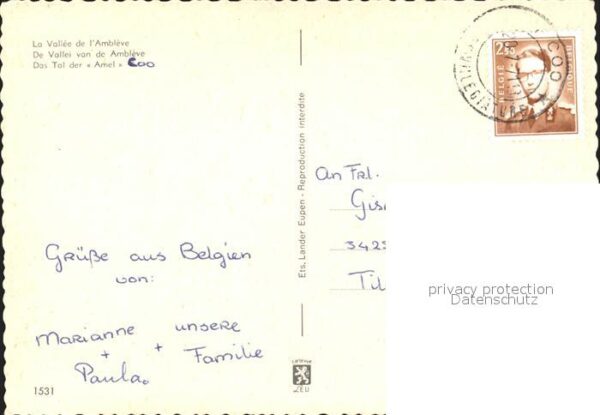 La Vallée de l'Amblève
De Vallei van de Amblève
Das Tal der « Amel » Coo
Grüße aus Belgien
von:
Marianne unsere
+ + Familie
Paula.
1531
Ets. Lander Eupen - Reproduction interdite
An Frl.
Gis
Til
BELGIË
COO
privacy protection
Datenschutz